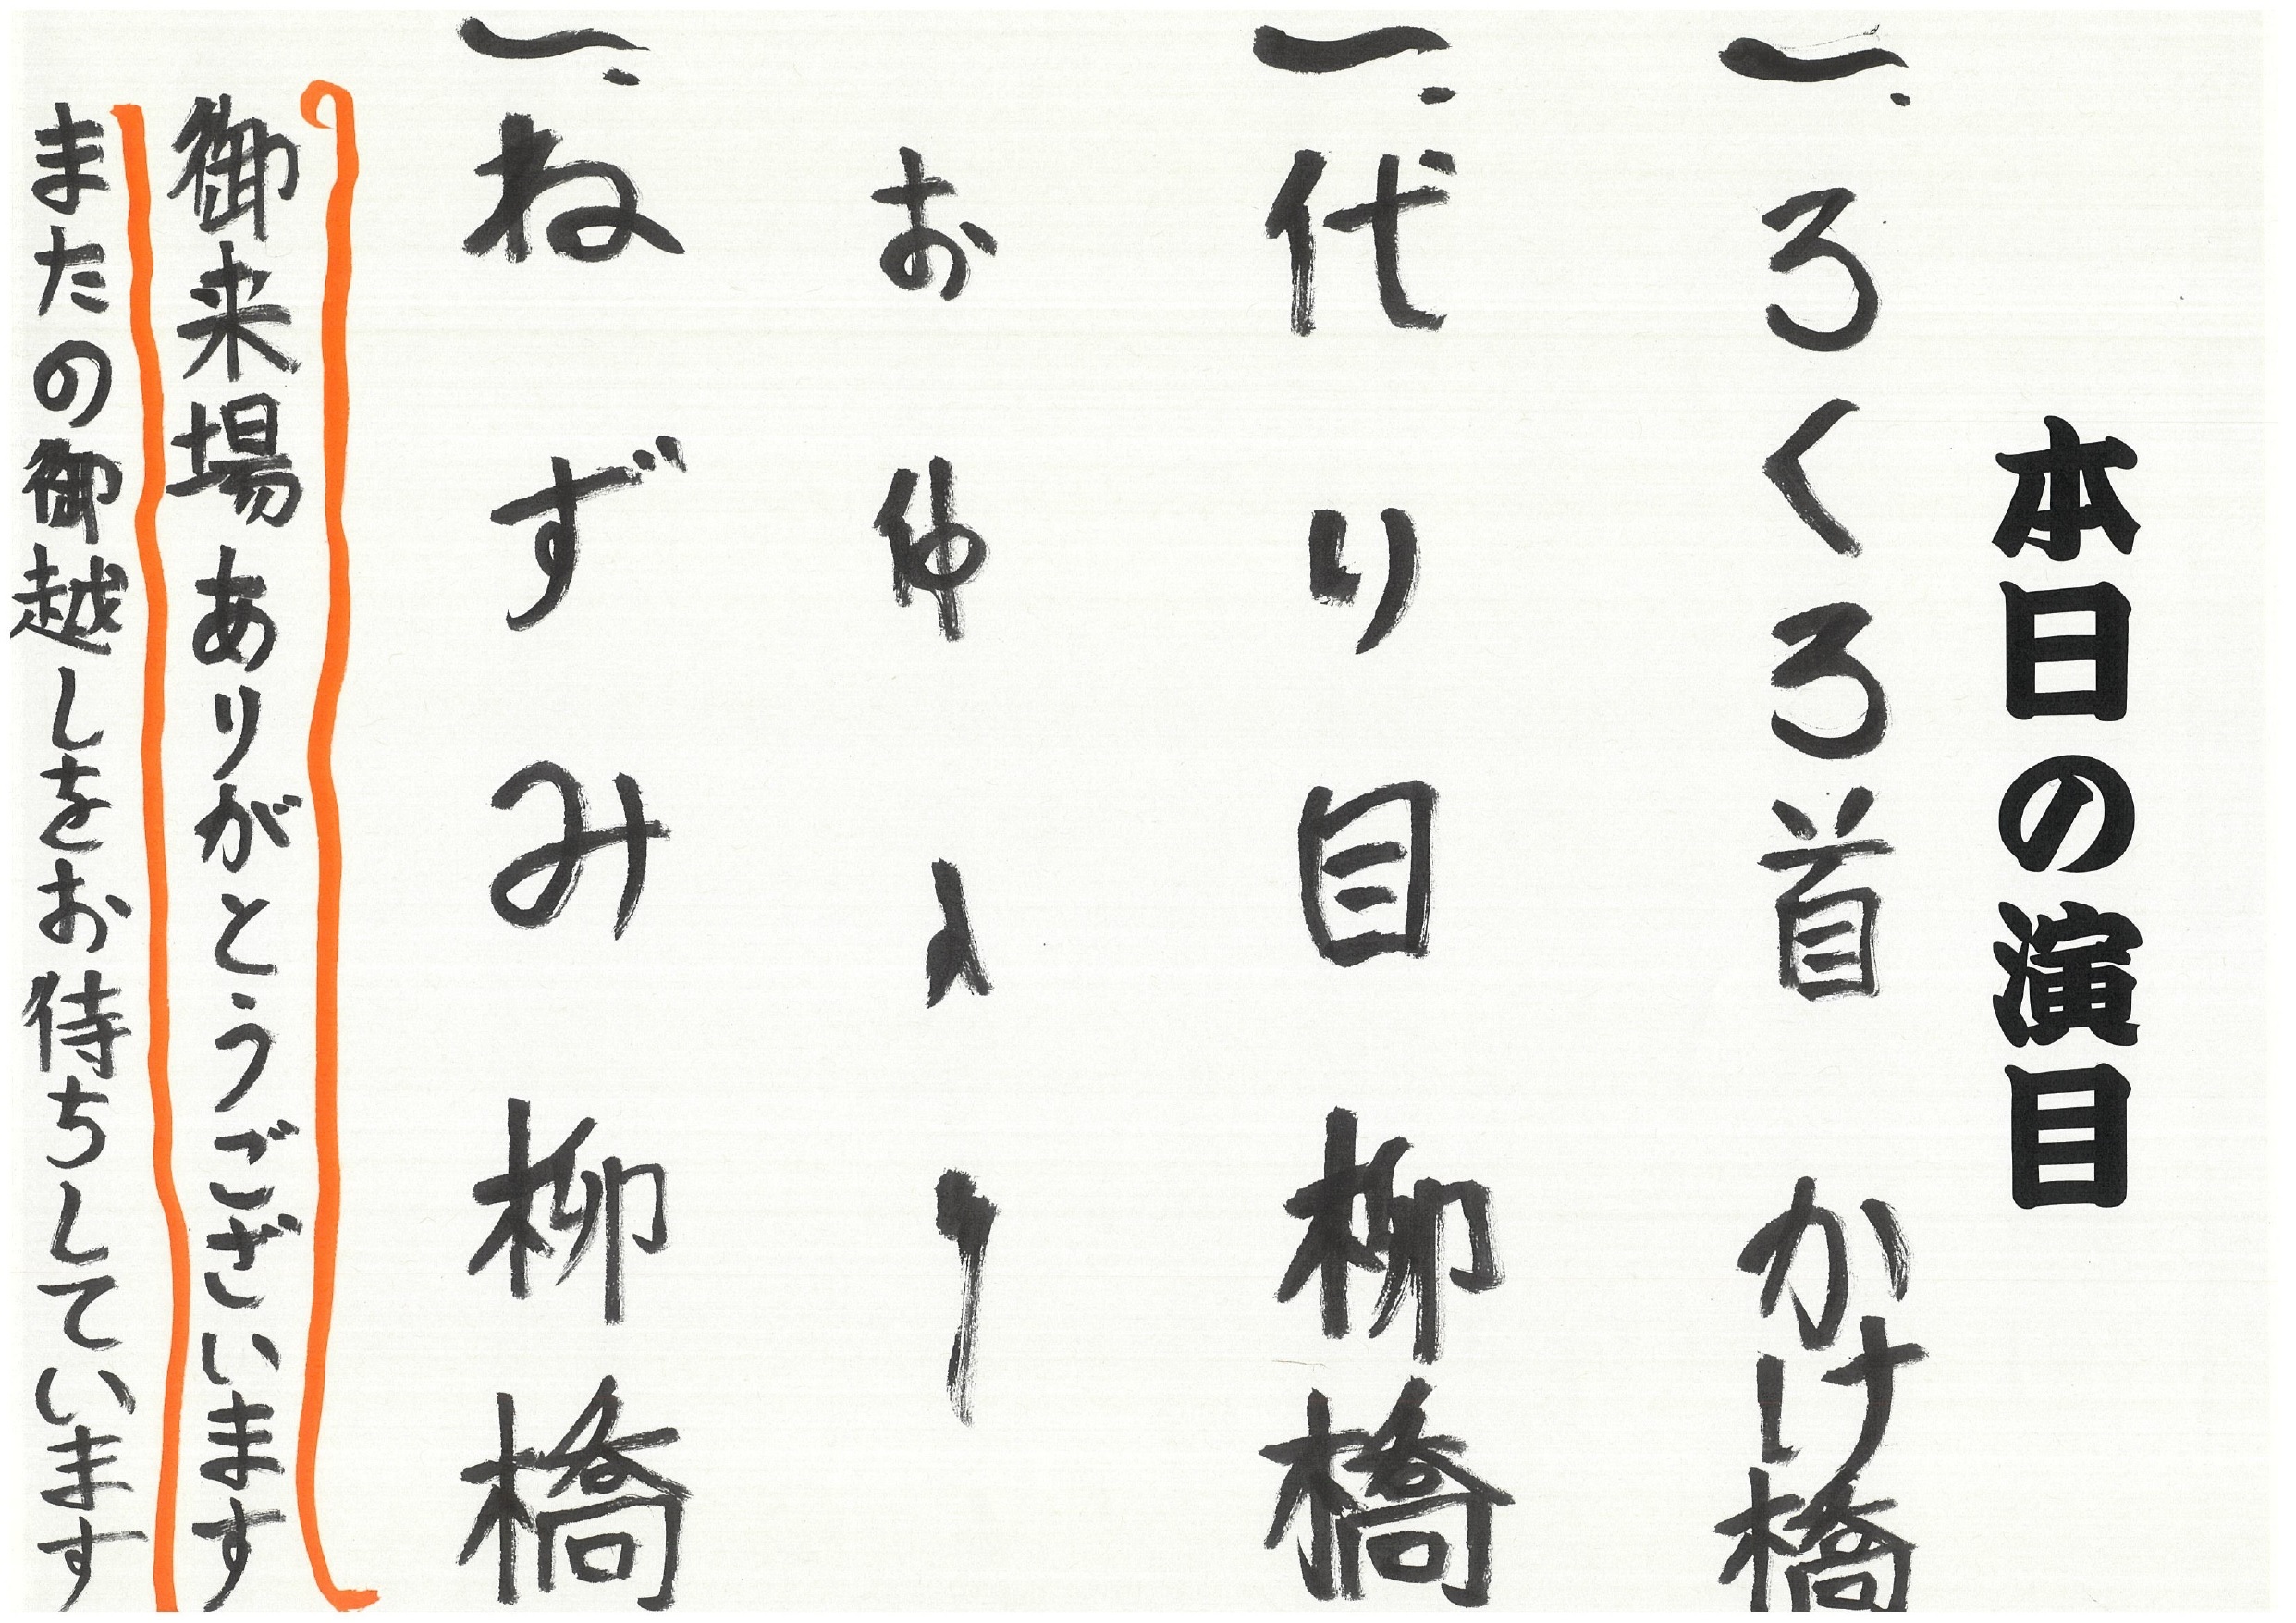 本日の演目
一、ろくろ首 かけ橋
一、代り目 柳橋
お仲入り
一、ねずみ 柳橋
御来場ありがとうございます
またの御越しをお待ちしています